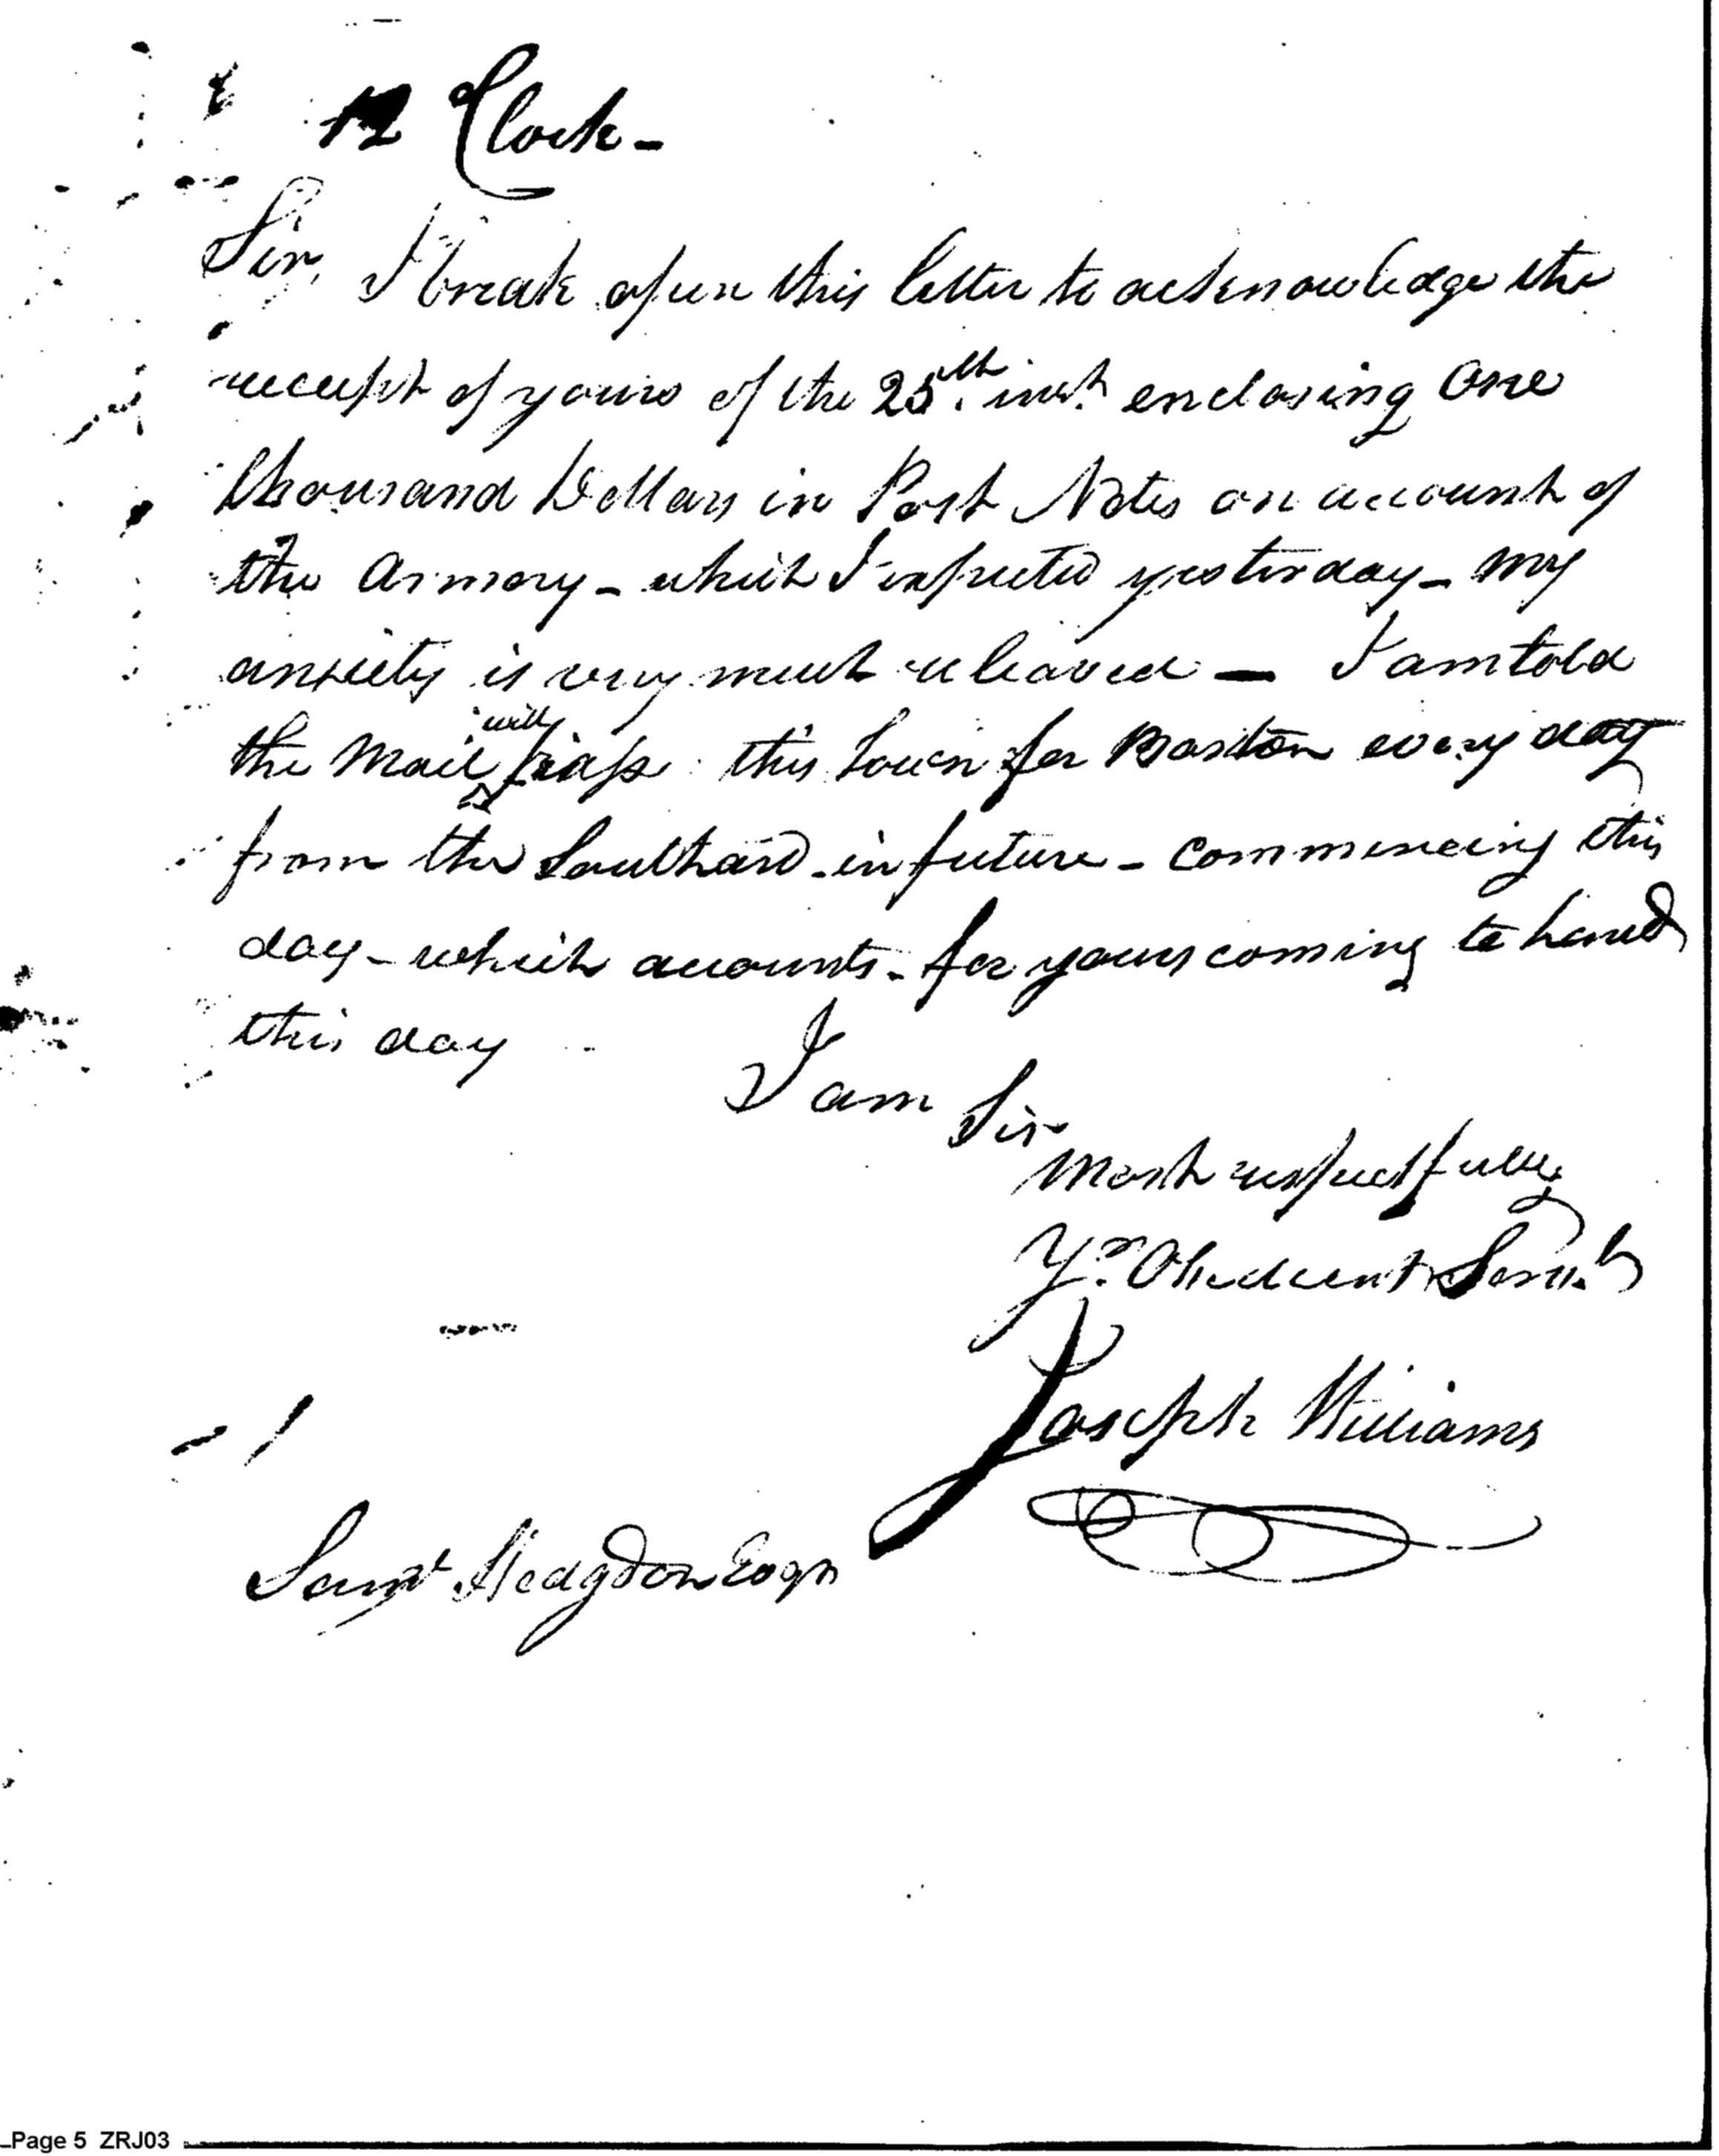 12 Clock -
Sir, I break open this letter to acknowledge the
receipt of yours of the 25th. inst. enclosing One
thousand Dollars in Post Notes on account of
the Armory - which I expected yesterday - My
anxiety is very much releaved — I am told
will
the Mail pass this Town for Boston every day
from the Southard in future - Commencing this
day - which accounts - for yours coming to hand
this day
I am Sir
Most respectfully
Yr. Obedient Servt.
Joseph Williams
Saml Hodgdon Esqr
Page 5 ZRJ03